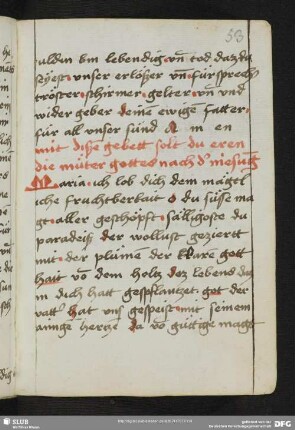 53
uldin bin lebendig vn tod daz du
seyest vnser erlößer vn fursprech
tröster schirmer gelter vn vnd
wider geber deinē ewigē fatter
für all vnser sünd A m en
mit diße gebett solt du eren
die muter gottes nach d' niesung
Maria ich lob dich dem mägtl
iche fruchtberkait o du süsse ma
gt aller geschöpft sälligoste du
paradeiß der wollust geziertt
mit der plume der kkare gott
hait vō dem holtz dez lebens daz
in dich hatt gespflantzet got der
vatt' hat vns gespeist mit seinem
ainige hertze da vō güttige magt
SLUB
gefördert von der
DFG